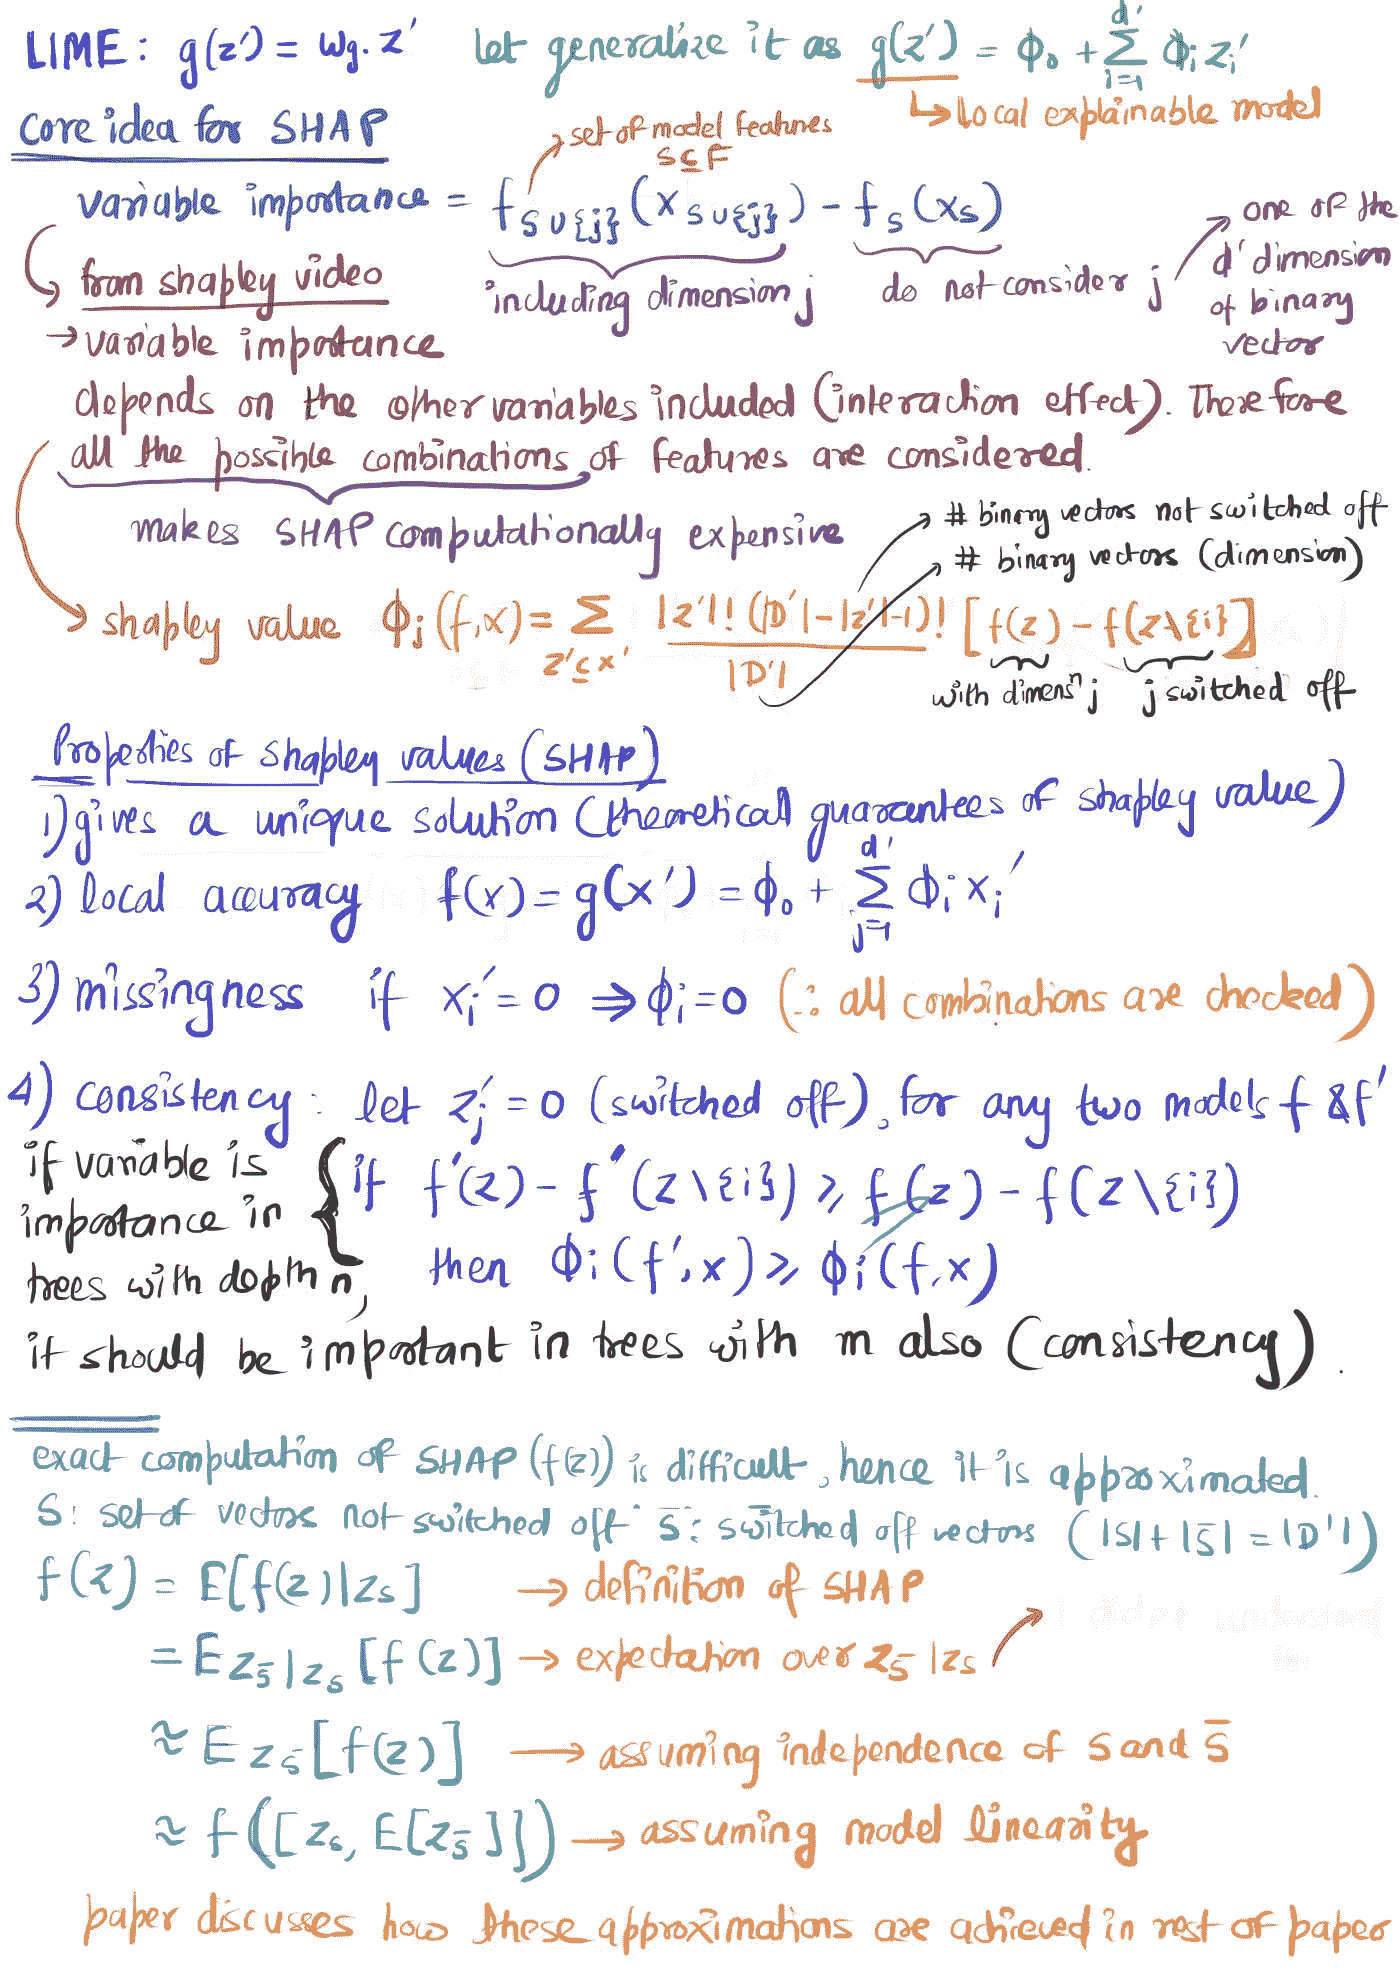 LIME: g(z') = wg. z' let generalize it as g(z') = ϕ₀ + Σ_{i=1}^{d'} ϕᵢ zᵢ'
↳ local explainable model
core idea for SHAP
set of model features
S ⊆ F
variable importance = f_{S∪{j}} (x_{S∪{j}}) - f_s (x_s)
including dimension j
do not consider j
one of the
d' dimension
of binary
vector
from shapley video
→ variable importance
depends on the other variables included (interaction effect). Therefore
all the possible combinations of features are considered.
makes SHAP computationally expensive
# binary vectors not switched off
# binary vectors (dimension)
shapley value ϕⱼ (f,x) = Σ_{z'⊆x'} |z'|! (|D'|-|z'|-1)! / |D'| [f(z) - f(z\{i}]
with dimensⁿ j
j switched off
Properties of shapley values (SHAP)
1) gives a unique solution (theoretical guarantees of shapley value)
2) local accuracy f(x) = g(x') = ϕ₀ + Σ_{j=1}^{d'} ϕᵢ xᵢ'
3) missingness if xᵢ' = 0 ⇒ ϕᵢ = 0 (∴ all combinations are checked)
4) consistency : let zⱼ' = 0 (switched off), for any two models f & f'
if f'(z) - f'(z\{i}) ⩾ f(z) - f(z\{i})
then ϕᵢ(f',x) ⩾ ϕᵢ(f,x)
if variable is
importance in
trees with depth n,
it should be important in trees with m also (consistency).
exact computation of SHAP (f(z)) is difficult, hence it is approximated.
S: set of vectors not switched off S̄: switched off vectors (|S|+|S̄| = |D'|)
f(z) = E[f(z)|z_s] → definition of SHAP
= E_{z_s̄|z_s} [f(z)] → expectation over z_s̄|z_s
≈ E_{z_s̄} [f(z)] → assuming independence of S and S̄
≈ f([z_s, E[z_s̄]]) → assuming model linearity
paper discusses how these approximations are achieved in rest of paper